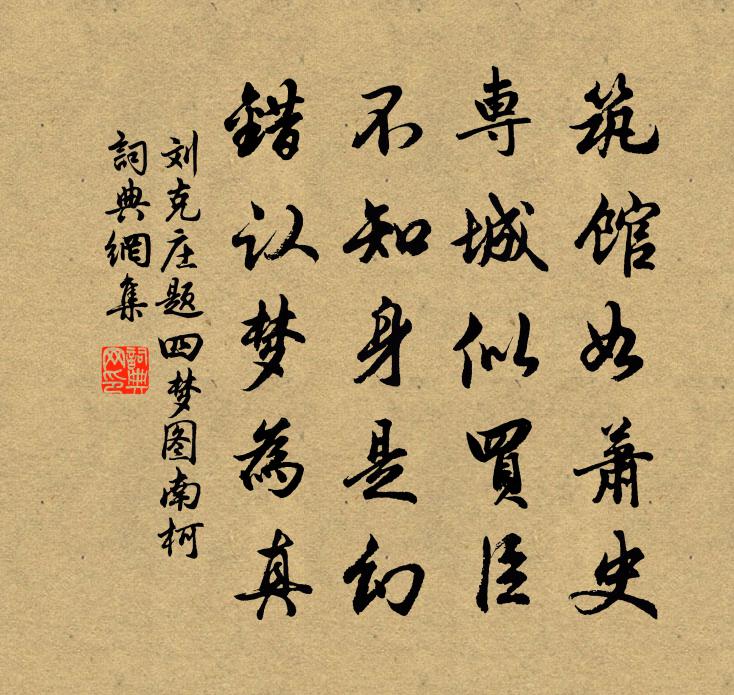 筑馆如萧史
専城似買臣
不知身是幻
錯认梦為真
刘克庄题四梦图南柯
詞典網集
詞典
网印